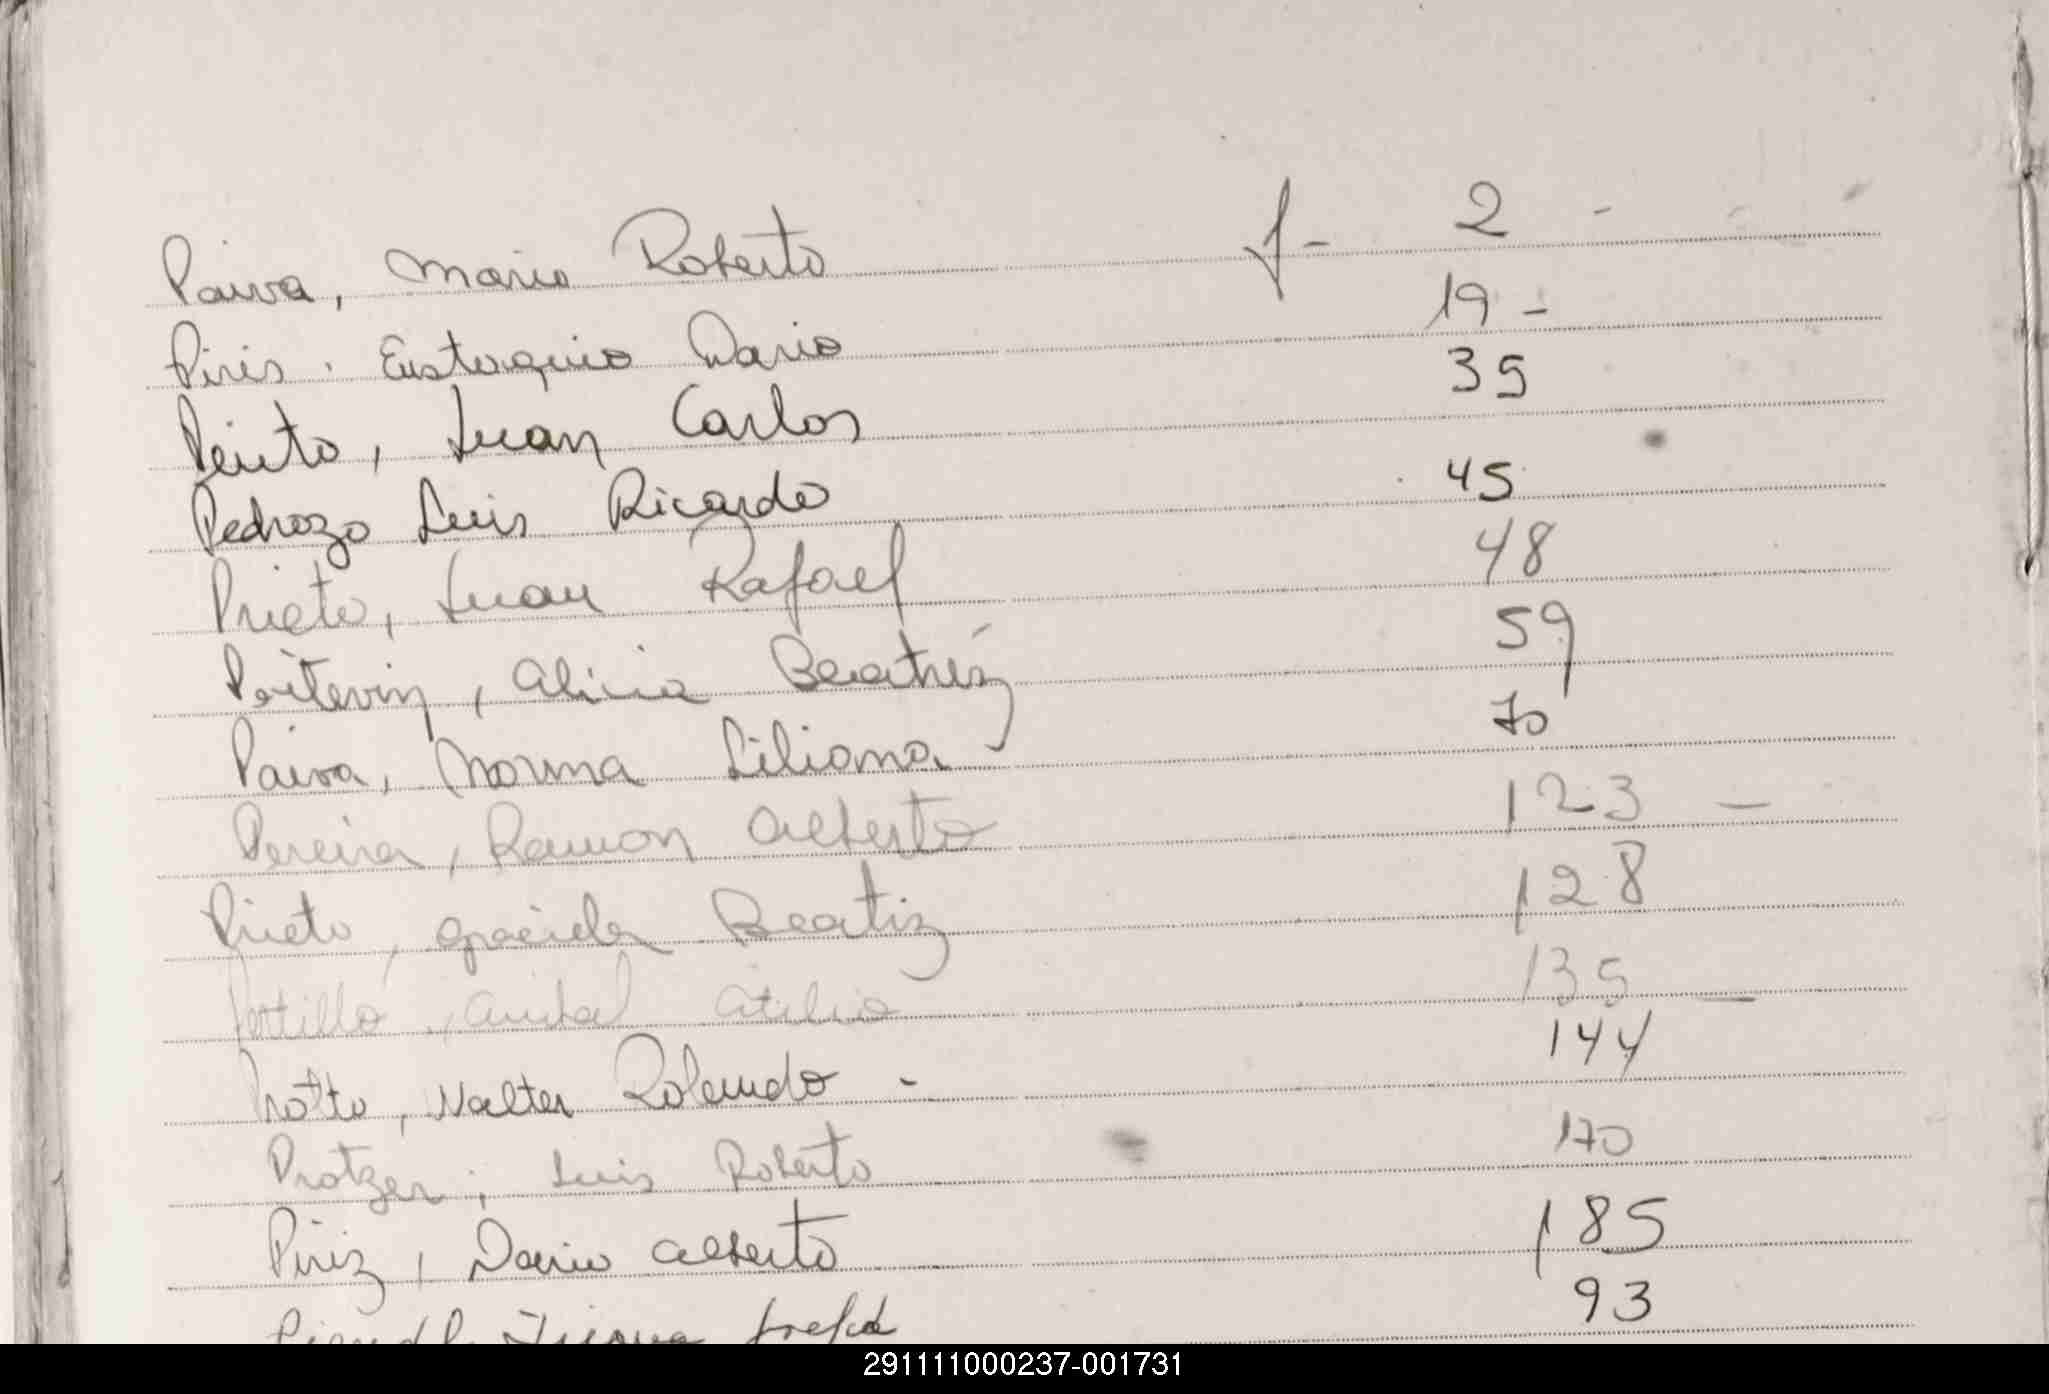 Paiva, Mario Roberto f- 2 -
Piris. Eustaquio Dario 19 -
Peiito, Juan Carlos 35
Pedrozo Luis Ricardo 45
Prieto, Juan Rafael 48
Poitevin, Alicia Beatriz 59
Paiva, Norma Liliana 70
Pereira, Ramon Alberto 123 -
Prieto, Graciela Beatriz 128
Portillo, Anibal Atilio 135 -
Protto, Walter Rolando - 144
Protzer, Luis Roberto 170
Piriz, Dario Alberto 185
93
291111000237-001731